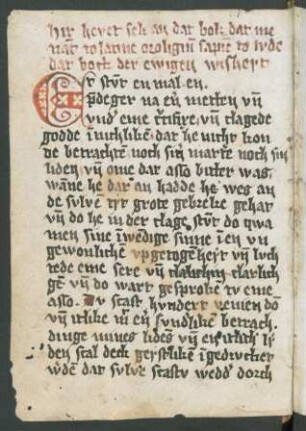 hir hevet sek an dat bok dat me
nat to latine orologium sapie to dude
dat bock der ewigen wisheyt
Er stůt en mal en
p̄deger na eŷ metten vn̄
vnd' eme c̄rifixe, vn̄ clagede
godde īnichlikē dat he nicht kon
de betrachtē noch siŋ marte noch sin
liden vn̄ ome dat also bitter was
wāne he dar an hadde he wes an
de sulvē tyt grote gebreke gehat
vn̄ do he in der clage stůt do qwa
men sine īwēdige sinne ī en vn
gewonlichē vpgetogēheyt vn̄ luch
tede eme sere vn̄ clarlich
gē vn̄ do wart gesprokē to eme
also. Du scalt hundert venien dō
vn̄ itlike mit eŷ sundliker betrach
dinge mines lides vn̄ en itlich li
den scal dech geystlikē īgedrucket
w'dē dat sulve scaltu wedd' dorch